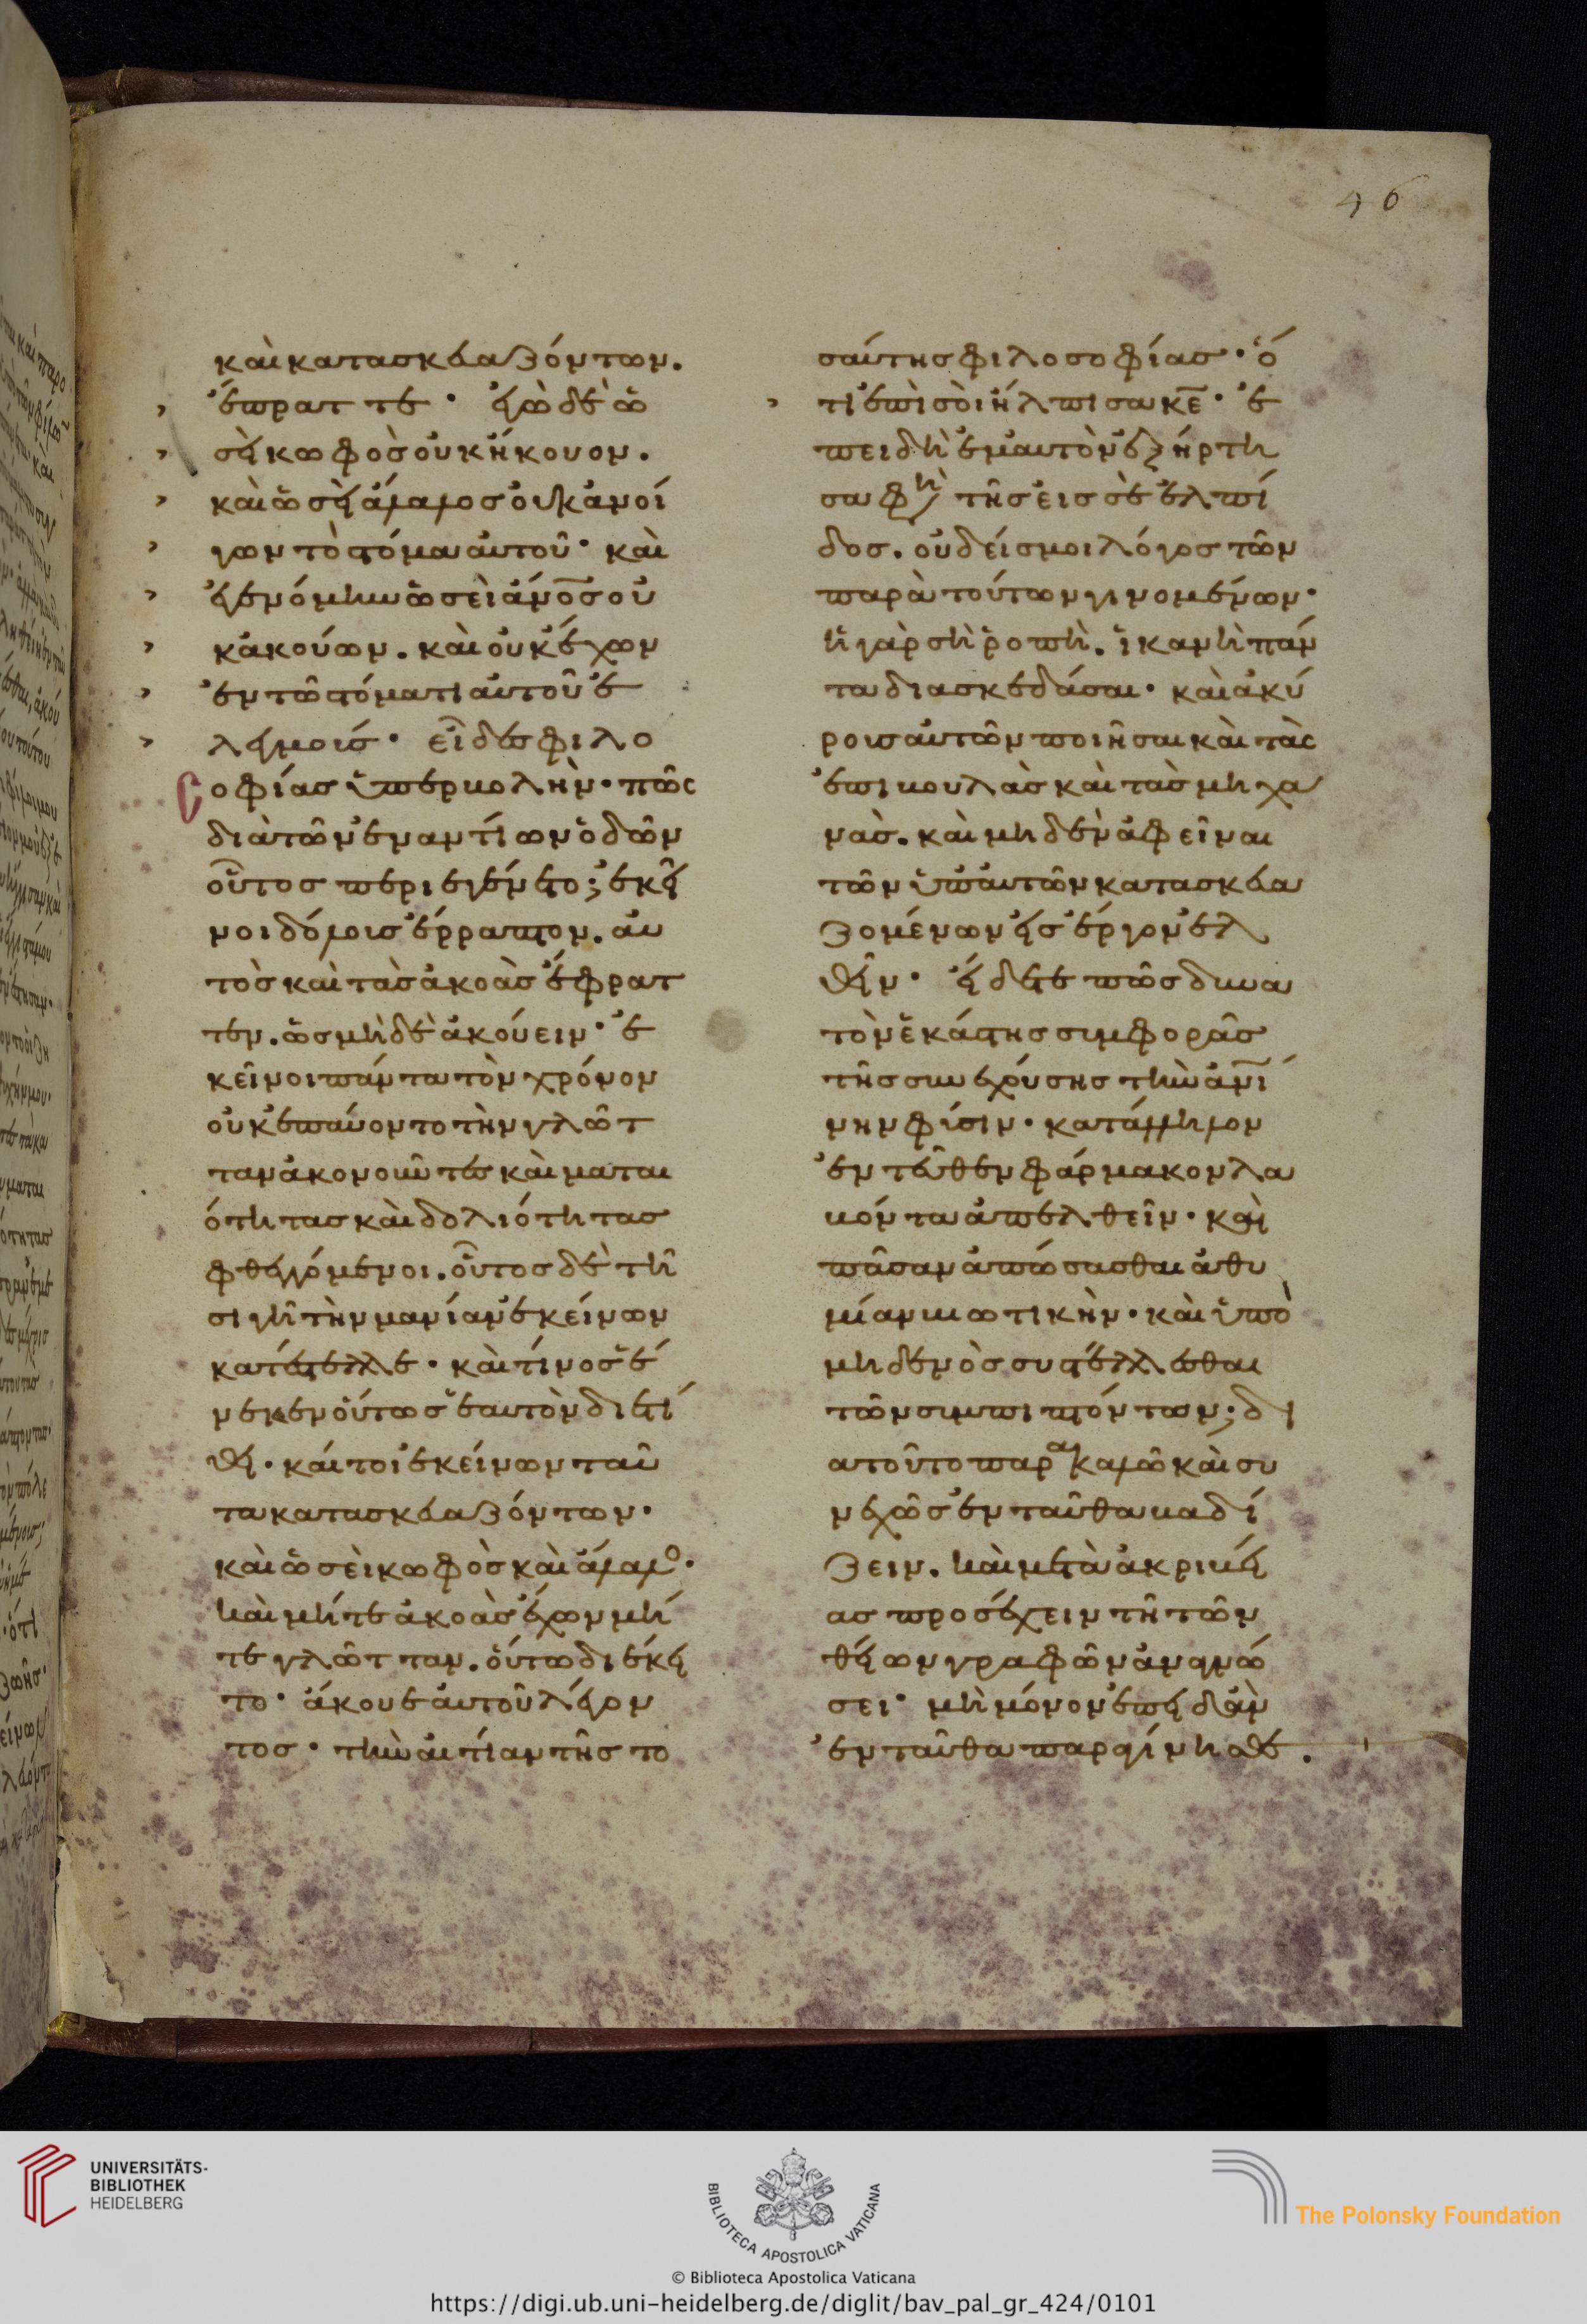 46
καὶ κατασκευαζόντων.
ἔπραττε· ἐγὼ δὲ ὡ
σεὶ κωφὸς οὐκ ἤκουον.
καὶ ὡσεὶ ἄλαλος οὐκ ἀνοί
γων τὸ στόμα αὐτοῦ· καὶ
ἐγενόμην ὡσεὶ ἄνος οὐ
κ ἀκούων. καὶ οὐκ ἔχων
ἐν τῶ στόματι αὐτοῦ ἐ
λεγμούς· εἶδες φιλο
σοφίας ὑπερβολὴν· πῶς
διὰ τῶν ἐναντίων ὁδῶν
οὗτος περιεγένετο; ἐκεῖ
νοι δόλοις ἔρραπτον. αυ
τὸς καὶ τὰς ἀκοὰς ἔφρατ
τεν. ὡς μὴ δὲ ἀκούειν· ἐ
κεῖνοι πάντα τὸν χρόνον
οὐκ ἐπαύοντο τὴν γλῶτ
ταν ἀκονοῦντες καὶ μαται
ότητας καὶ δολιότητας
φθεγγόμενοι. οὗτος δὲ τῆ
σιγῆ τὴν μανίαν ἐκείνων
κατέστελλε· καὶ τίνος ἕ
νεκεν οὕτως ἑαυτὸν διετί
θει· καίτοι ἐκείνων ταῦ
τα κατασκευαζόντων·
καὶ ὡσεὶ κωφὸς καὶ ἄλαλος·
καὶ μήτε ἀκοὰς ἔχων μή
τε γλῶτταν. οὕτω διέκει
το· ἄκουε αὐτοῦ λέγον
τος· τὴν αἰτίαν τῆς το
σαύτης φιλοσοφίας· ὅ
τι ἐπὶ σοὶ ἤλπισα κε· ἐ
πειδὴ ἐμαυτὸν ἐξήρτη
σα φη τῆς εἰς σὲ ἐλπί
δος. οὐδείς μοι λόγος τῶν
παρὰ τούτων γινομένων·
ἡ γὰρ σὴ ῥοπὴ. ἱκανὴ πάν
τα διασκεδάσαι· καὶ ἀκύ
ροις αὐτῶν ποιῆσαι καὶ τὰς
ἐπιβουλὰς καὶ τὰς μηχα
νὰς. καὶ μηδὲν ἀφεῖναι
τῶν ὑπ' αὐτῶν κατασκευα
ζομένων εἰς ἔργον ἐλ
θεῖν· εἴδετε πῶς δυνα
τὸν ἑκάστης συμφορᾶς
τῆς συνεχούσης τὴν ἀνί
νην φύσιν· κατάλληλον
ἐντεῦθεν φάρμακον λα
βόντα ἀπελθεῖν· καὶ
πᾶσαν ἀπώσασθαι ἀθυ
μίαν βιωτικὴν· καὶ ὑπὸ
μηδενὸς συστέλλεσθαι
τῶν συμπιπτόντων; δι
ατοῦτο παρακαλῶ καὶ συ
νεχῶς ἐνταῦθα βαδί
ζειν. καὶ μετὰ ἀκριβεί
ας προσέχειν τῆ τῶν
θείων γραφῶν ἀναγνώ
σει· μὴ μόνον ἐπειδὰν
ἐνταῦθα παραγίνησθε.
UNIVERSITÄTS-
BIBLIOTHEK
HEIDELBERG
BIBLIOTECA APOSTOLICA VATICANA
The Polonsky Foundation
© Biblioteca Apostolica Vaticana
https://digi.ub.uni-heidelberg.de/diglit/bav_pal_gr_424/0101